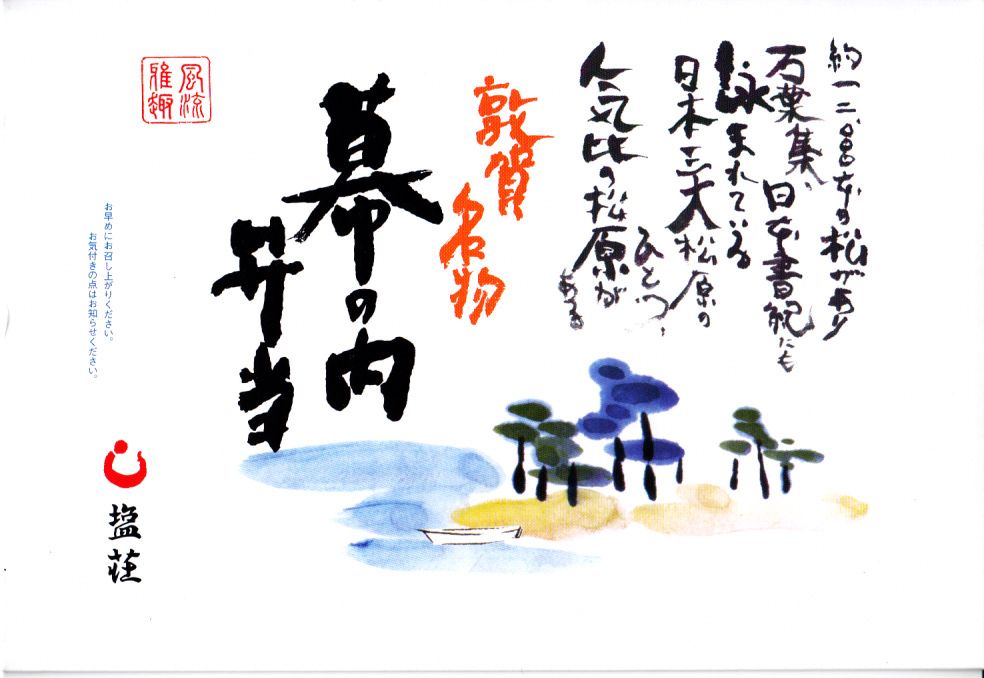 約一二、〇〇〇本の松があり
万葉集、日本書紀にも
詠まれている
日本三大松原の
ひとつ、
気比の松原が
ある
敦賀
名物
幕の内
弁当
風流
雅趣
お早めにお召し上がりください。
お気付きの点はお知らせください。
塩荘